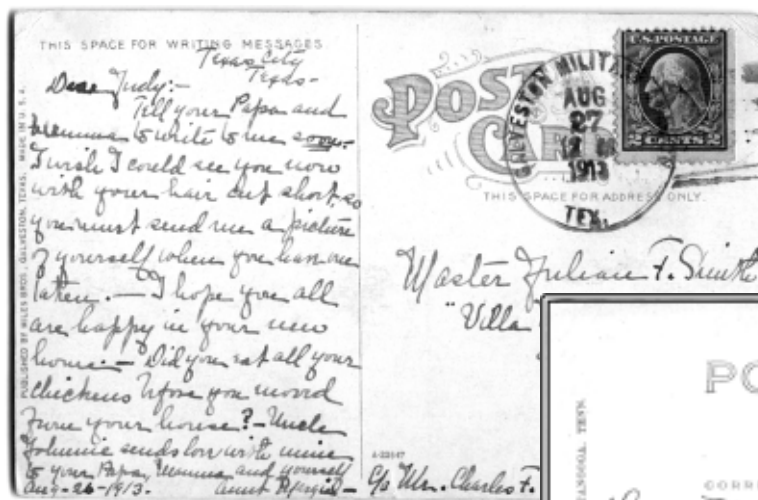 THIS SPACE FOR WRITING MESSAGES
Texas City
Texas-
Dear Judy:-
Tell your Papa and
Mamma to write to me soon.
I wish I could see you now
with your hair cut short, so
you must send me a picture
of yourself when you have one
taken. — I hope you all
are happy in your new
home. — Did you eat all your
chickens before you moved
from your house? — Uncle
Johnnie sends love with mine
to your Papa, Mamma and yourself
Aug-26-1913. Aunt
PUBLISHED BY MILES BROS., GALVESTON, TEXAS. MADE IN U.S.A.
POST
CARD
GALVESTON MILITA
AUG
27
12
1913
TEX.
U.S. POSTAGE
2 CENTS 2
THIS SPACE FOR ADDRESS ONLY.
Master Julian F. Smith
"Villa
A-33147
C/o Mr. Charles F.
PO
TENN.
CORR